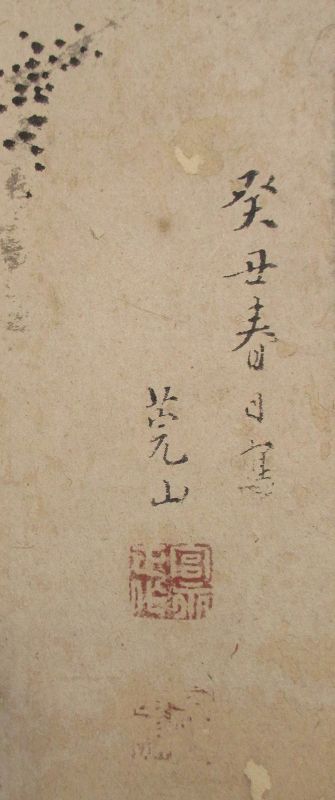 癸丑春日寫
莞山